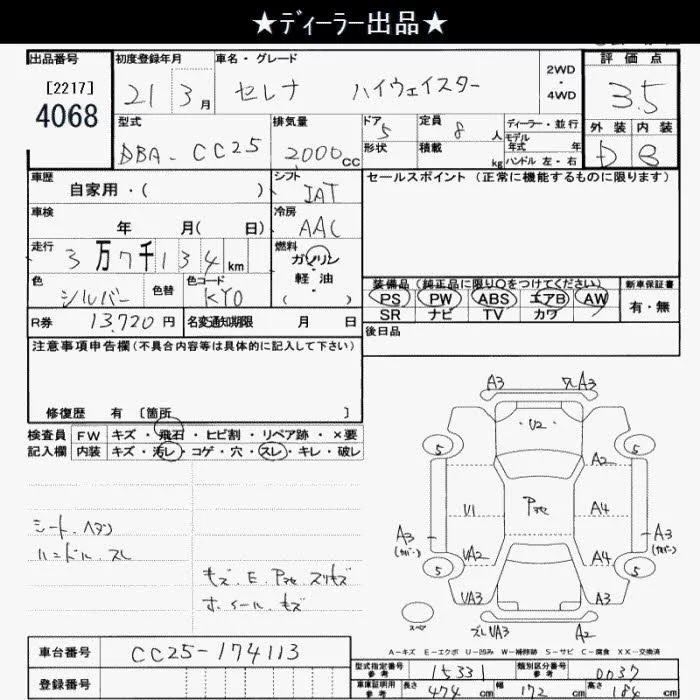 ★ディーラー出品★
出品番号
[2217]
4068
初度登録年月
21 3月
車名・グレード
セレナ ハイウェイスター
2WD
・
4WD
評価点
3.5
外装 内装
D B
型式
DBA-CC25
排気量
2000cc
ドア 5
形状
定員 8人
積載 kg
ディーラー・並行
モデル年式 年
ハンドル 左・右
車歴
自家用・( )
シフト
IAT
セールスポイント(正常に機能するものに限ります)
車検
年 月( 日)
冷房
AAC
走行
3万7千134km
燃料
ガソリン
軽油
( )
色
シルバー
色替
色コード
KY0
装備品(純正品に限り○をつけてください)
PS PW ABS エアB AW
SR ナビ TV カワ
新車保証書
有・無
R券 13,720円
名変通知期限 月 日
後日品
注意事項申告欄(不具合内容等は具体的に記入して下さい)
修復歴 有 〔箇所 〕
検査員記入欄
FW キズ・飛石・ヒビ割・リペア跡・×要
内装 キズ・汚レ・コゲ・穴・スレ・キレ・破レ
シート.ヘタリ
ハンドル.スレ
キズ.E.
ホイール.キズ
A3 A3
U2
5 5
A2
U1 A4
A3
(カバー)
A3
(カバー)
UA2 A4
5 5
UA3 A3
スペア
ズレUA3 A2
A-キズ E-エクボ U-凹み W-補修跡 S-サビ C-腐食 XX-交換済
車台番号
CC25-174113
登録番号
型式指定番号
参考
15331
類別区分番号
参考
0037
車庫証明用
参考
長さ 474cm 幅 172cm 高さ 184cm